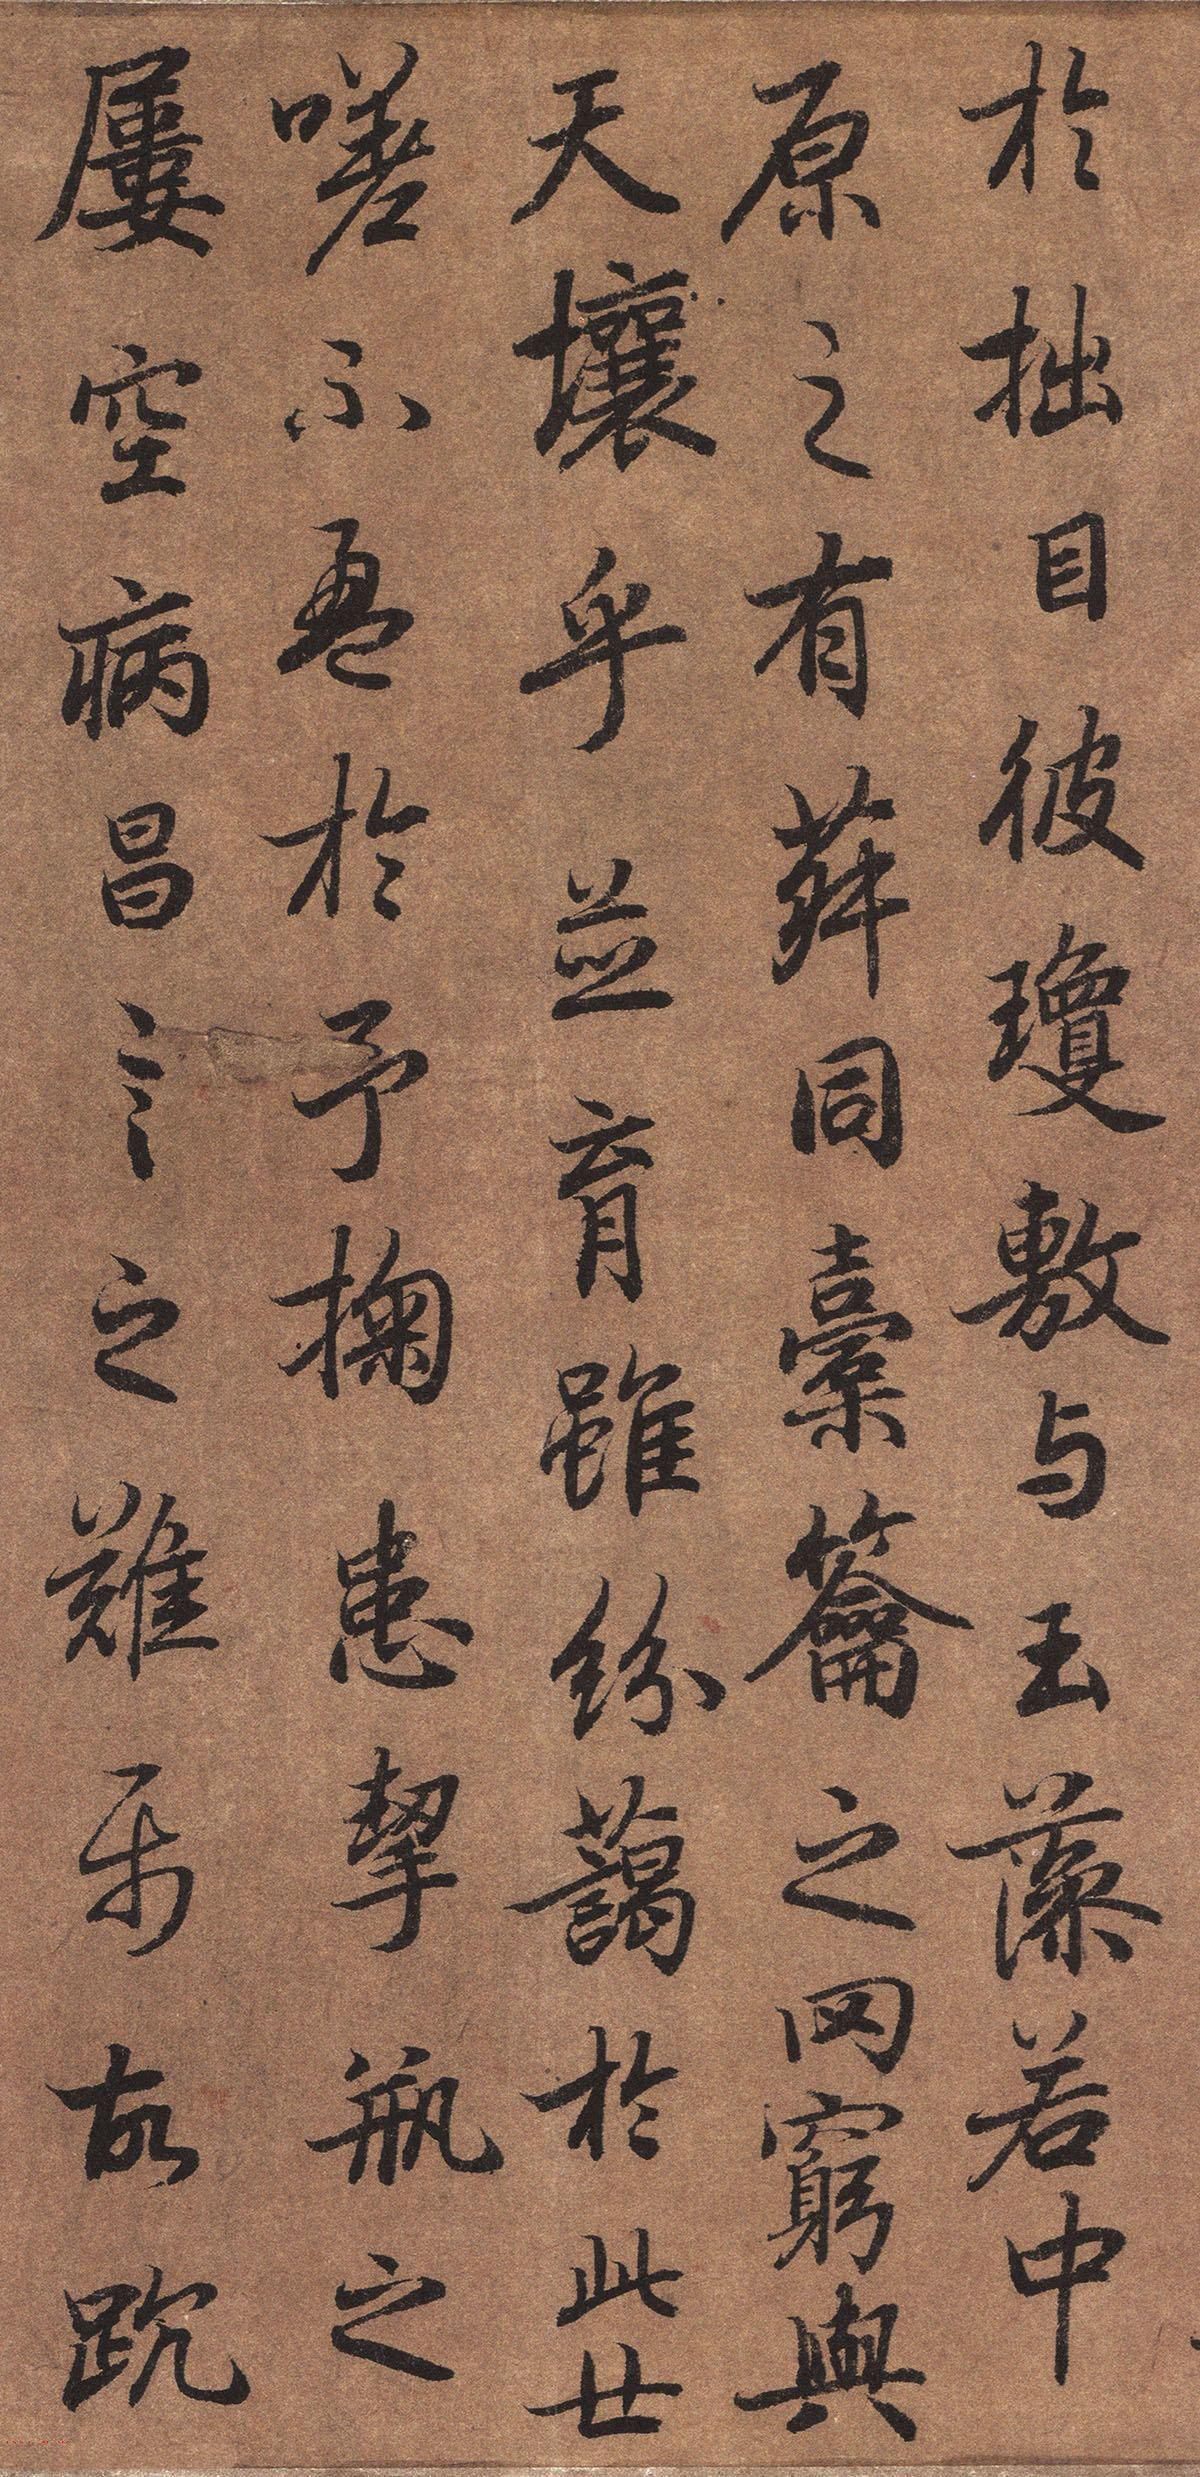 於拙目彼瓊敷与玉藻若中
原之有菽同橐籥之罔窮與
天壤乎並育雖紛藹於此世
嗟不盈於予掬患挈瓶之
屢空病昌言之難属故𧿒